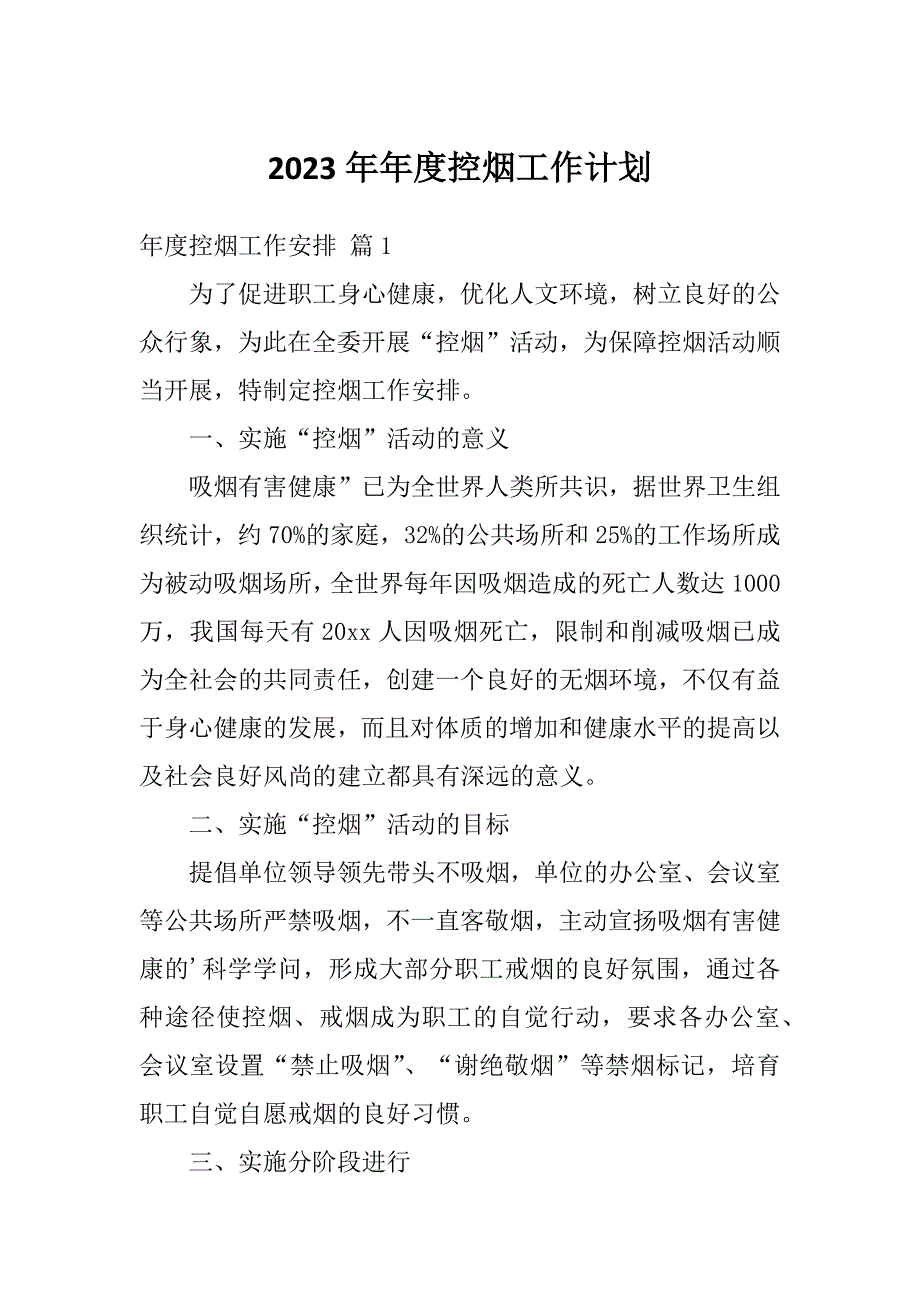 2023 年年度控烟工作计划
年度控烟工作安排 篇 1
为了促进职工身心健康，优化人文环境，树立良好的公
众行象，为此在全委开展“控烟”活动，为保障控烟活动顺
当开展，特制定控烟工作安排。
一、实施“控烟”活动的意义
吸烟有害健康”已为全世界人类所共识，据世界卫生组
织统计，约 70%的家庭，32%的公共场所和 25%的工作场所成
为被动吸烟场所，全世界每年因吸烟造成的死亡人数达 1000
万，我国每天有 20xx 人因吸烟死亡，限制和削减吸烟已成
为全社会的共同责任，创建一个良好的无烟环境，不仅有益
于身心健康的发展，而且对体质的增加和健康水平的提高以
及社会良好风尚的建立都具有深远的意义。
二、实施“控烟”活动的目标
提倡单位领导领先带头不吸烟，单位的办公室、会议室
等公共场所严禁吸烟，不一直客敬烟，主动宣扬吸烟有害健
康的'科学学问，形成大部分职工戒烟的良好氛围，通过各
种途径使控烟、戒烟成为职工的自觉行动，要求各办公室、
会议室设置“禁止吸烟”、“谢绝敬烟”等禁烟标记，培育
职工自觉自愿戒烟的良好习惯。
三、实施分阶段进行